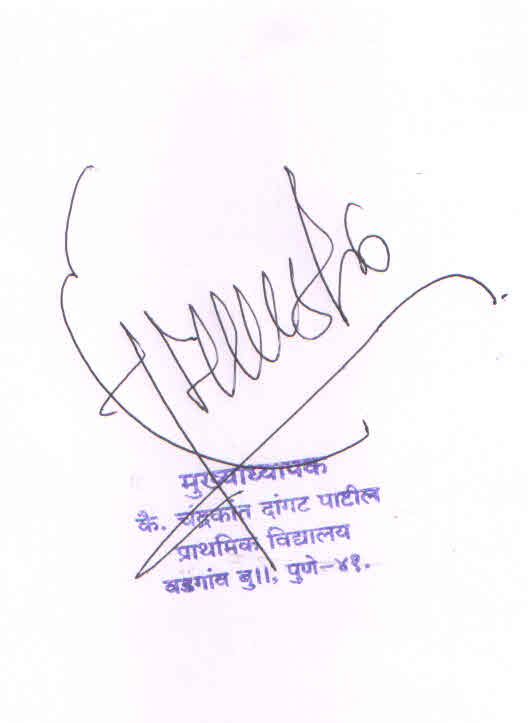 मुख्याध्यापक
कै. चंद्रकांत दांगट पाटील
प्राथमिक विद्यालय
वडगांव बु॥, पुणे-४१.